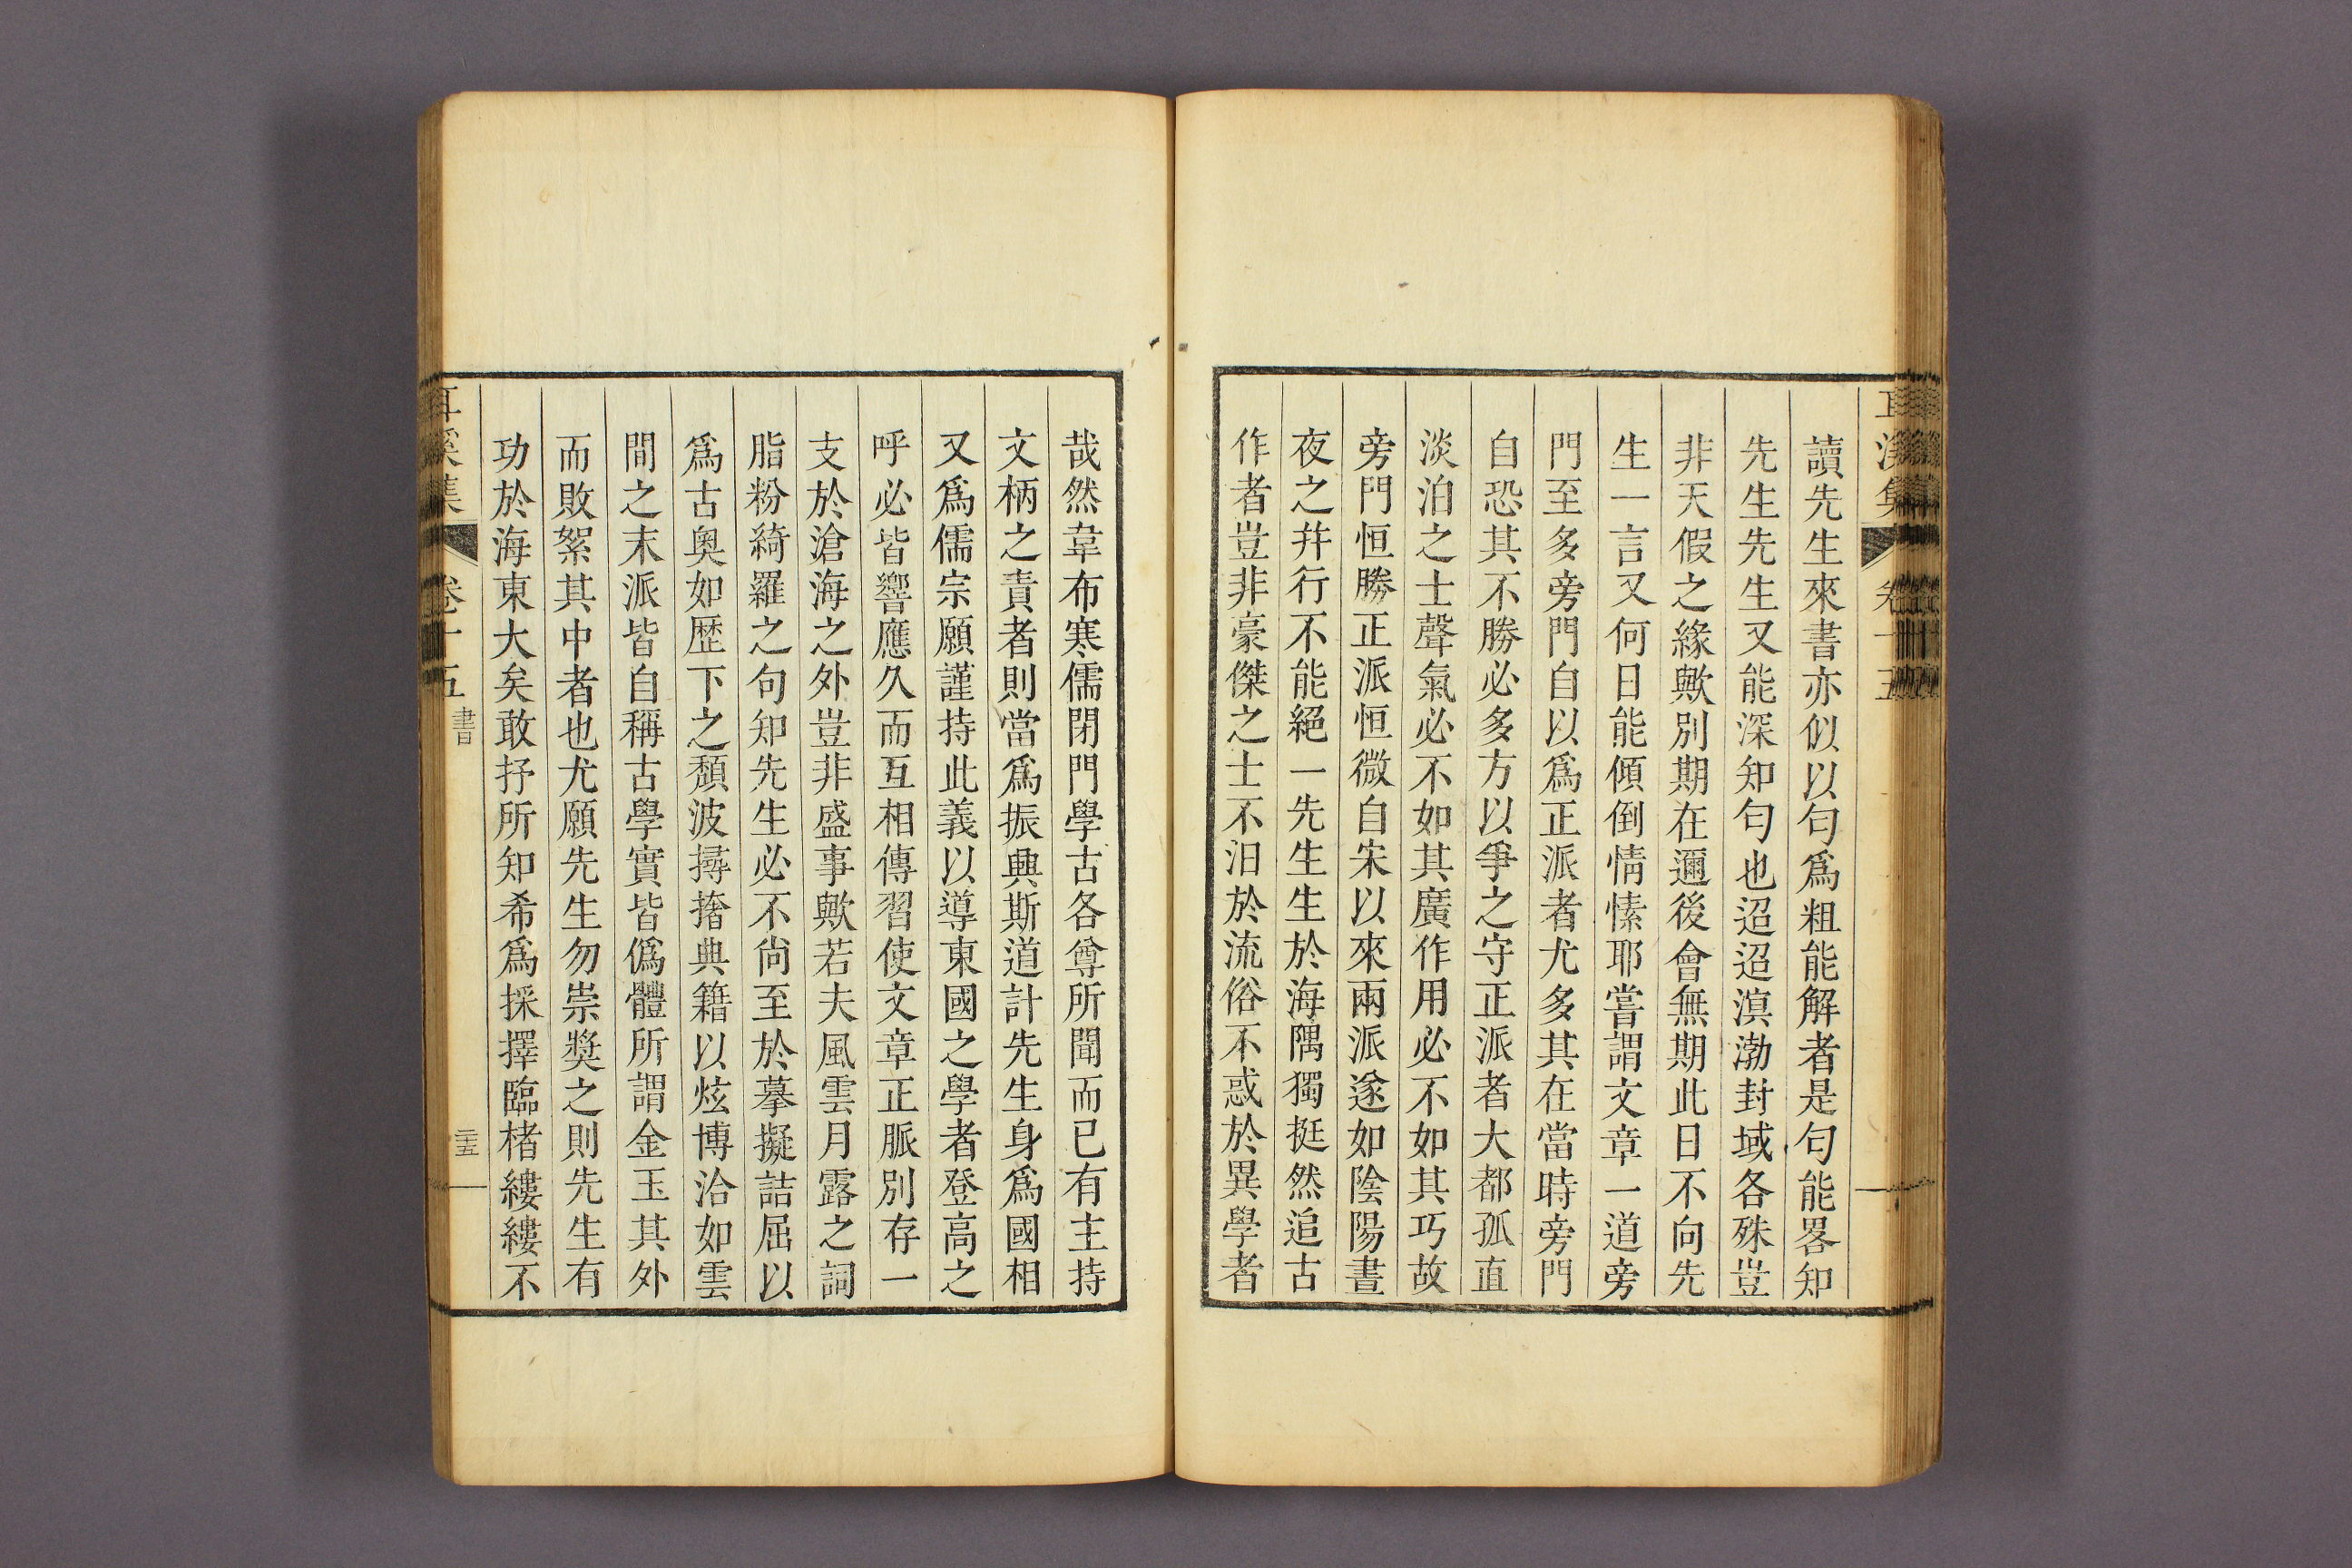 讀先生來書亦似以勻爲粗能解者是勻能畧知
先生先生又能深知勻也迢迢溟渤封域各殊豈
非天假之緣歟別期在邇後會無期此日不向先
生一言又何日能傾倒情愫耶嘗謂文章一道旁
門至多旁門自以爲正派者尤多其在當時旁門
自恐其不勝必多方以爭之守正派者大都孤直
淡泊之士聲氣必不如其廣作用必不如其巧故
旁門恒勝正派恒微自宋以來兩派遂如陰陽晝
夜之幷行不能絕一先生生於海隅獨挺然追古
作者豈非豪傑之士不汨於流俗不惑於異學者
哉然韋布寒儒閉門學古各尊所聞而已有主持
文柄之責者則當爲振興斯道計先生身爲國相
又爲儒宗願謹持此義以導東國之學者登高之
呼必皆響應久而互相傳習使文章正脈別存一
支於滄海之外豈非盛事歟若夫風雲月露之詞
脂粉綺羅之句知先生必不尙至於摹擬詰屈以
爲古奧如歷下之頹波撏撦典籍以炫博洽如雲
間之末派皆自稱古學實皆僞體所謂金玉其外
而敗絮其中者也尤願先生勿崇獎之則先生有
功於海東大矣敢抒所知希爲採擇臨楮縷縷不
耳溪集 卷十五 書 二十五